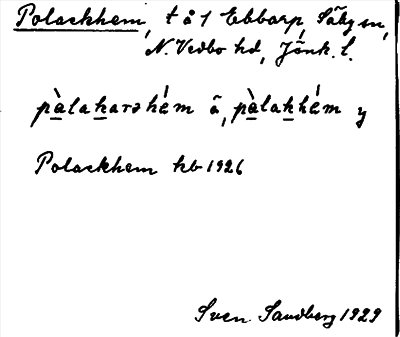 Polackhem, t å 1 Ebbarp, Säby sn,
N. Vedbo hd, Jönk. l.
pàlakarəhém ä, pàlakhém y
Polackhem kb 1926
Sven Sandberg 1929